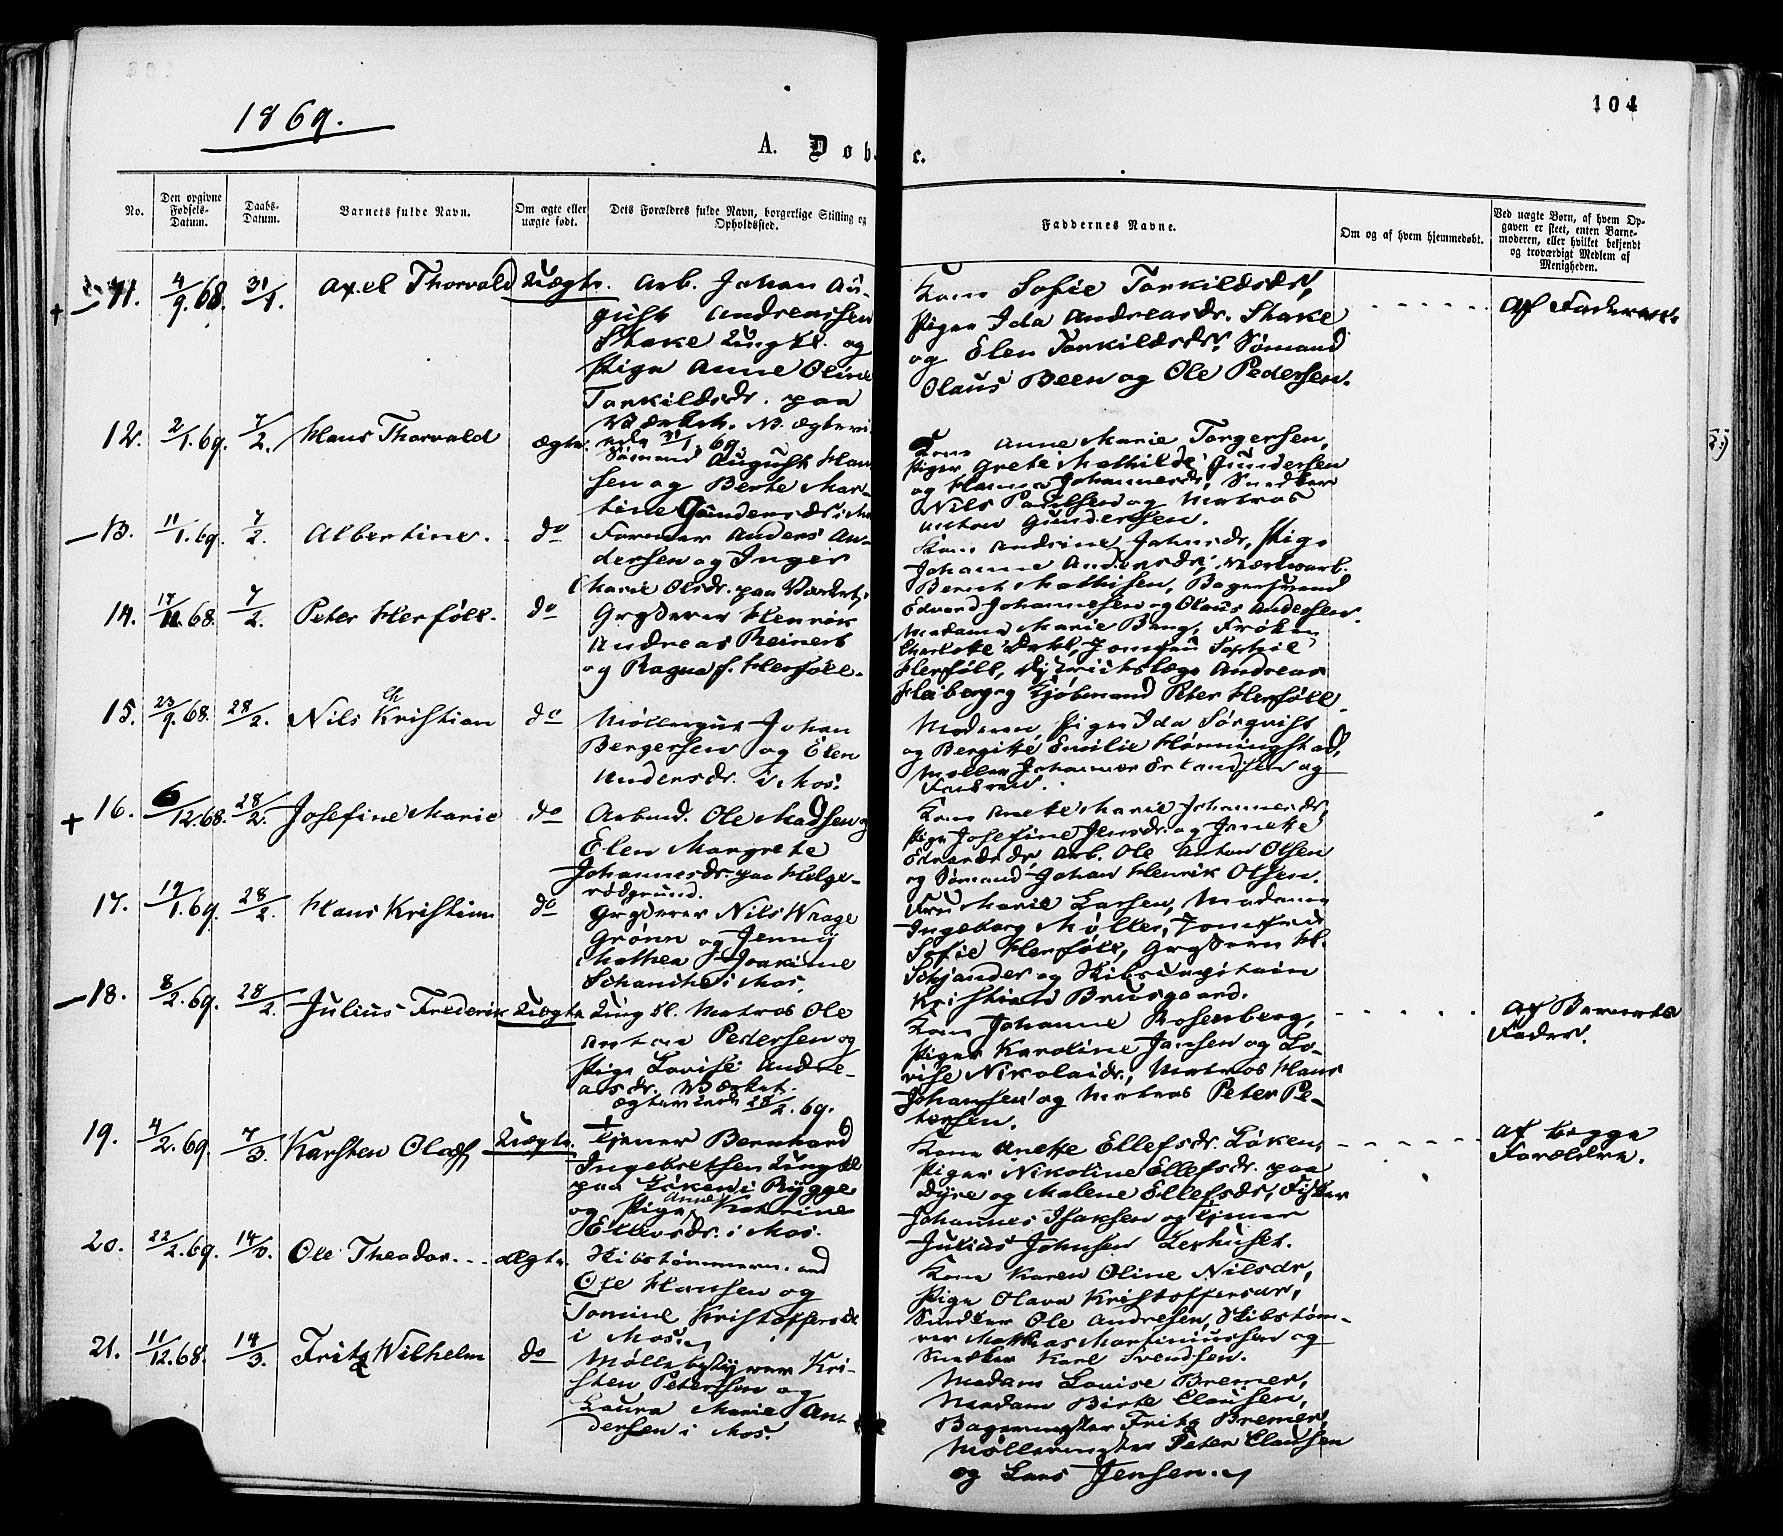 1869.
104
A. Døbte.
No.
Den opgivne Fødsels-Datum.
Daabs-Datum.
Barnets fulde Navn.
Om ægte eller uægte født.
Dets Forældres fulde Navn, borgerlige Stilling og Opholdssted.
Faddernes Navne.
Om og af hvem hjemmedøbt.
Ved uægte Børn, af hvem Opgaven er skeet, enten Barnemoderen, eller hvilket bekjendt og troværdigt Medlem af Menigheden.
11. 4/9.68. 31/1. Axel Thorvald Uægte. Arb. Johan Au-
gust Andreassen
Stake Ung kl. og
Pige Anne Oline
Torkildsdr. paa
Værket. N. ægtevi
ede 31/1 69.
Kone Sofie Torkildsdr,
Piger Ida Andreasdr. Stake
og Elen Torkildsdr, Sømand
Olaus Been og Ole Pedersen.
Af Faderen.
12. 2/1.69. 7/2. Hans Thorvald ægte. Sømand August Han-
sen og Berte Mar-
tine Gundersdr i Mos
Kone Anne Marie Torgersen,
Piger Grete Mathilde Gundersen
og Hanna Johannesdr, Snedker
Nils Paulsen og Matros
Anton Gundersen.
13. 11/1.69. 7/2. Albertine. do Former Anders An-
dersen og Inger
Marie Olsdr. paa Værket.
Kone Andrine Johnsdr, Pige
Johanne Andersdr, Værksarb.
Bernt Mathisen, Bagersvend
Edvard Johannesen og Olaus Andersen.
14. 17/11.68. 7/2. Peter Herføll. do Grosserer Henrik
Andreas Reinert
og Ragna f. Herføll.
Madame Marie Bang, Frøken
Charlotte Jomfru Sophie
Herføll, Distriktslæge Andreas
Heiberg og Kjøbmand Peter Herføll.
15. 23/9.68. 28/2. Nils Kristian do Møllergut Johan
Ch
Bergersen og Elen
Andersdr. i Mos.
Moderen, Piger Ida Sørqvist
og Bergitte Emilie Hønningstad,
Møller Johannes Erlandsen og
Faderen.
16. 6/12.68. 28/2. Josefine Marie do Arbmd. Ole Madsen og
Elen Margrete
Johannesdr paa Helge-
rødgrund.
Kone Anette Marie Johannesdr,
Pige Josefine Jensdr. og Janette
Edvardsdr, Arb. Ole Anton Olsen
og Sømand Johan Henrik Olsen.
17. 19/1.69. 28/2. Hans Kristian do Grosserer Nils Wrage
Grønn og Jenny
Mathea Joakime
Schanche i Mos.
Fru Marie Larsen, Madame
Ingeborg Møller, Jomfru
Sofie Herføll, Grosserer H.
Schjander og Skibscapitain
Kristian Brusgaard.
18. 8/2.69. 28/2. Julius Frederik Uægte Ung kl. Matros Ole
Anton Pedersen og
Pige Lovise Andre-
asdr. Værket.
Ægteviede 28/2.69.
Kone Johanne Rosenberg,
Piger Karoline Jansen og Lo-
vise Nikolaidr., Matros Hans
Johansen og Matros Peter Pe-
tersen.
Af Barnets
Fader.
19. 4/2.69. 7/3. Karsten Olaf Uægte. Tjener Bernhard
Ingebretsen Ung kl
paa Løken i Rygge
og Pige Anne Katrine
Ellefsdr. i Mos.
Kone Anette Ellefsdr. Løken,
Piger Nikoline Ellefsdr. paa
Dyre og Malene Ellefsdr, Fisker
Johannes Isaksen og Tjener
Julius Johnsen Lerhuset.
Af begge
Forældre.
20. 22/2.69. 14/3. Ole Theodor. ægte. Skibstømmermand
Ole Hansen og
Tomine Kristoffersdr
i Mos.
Kone Karen Oline Nilsdr,
Pige Olava Kristoffersdr,
Snedker Ole Andresen, Skibstøm-
rer Mathias Martiniussen og
Snedker Karl Svendsen.
21. 11/12.68. 14/3. Fritz Wilhelm do Møllebestyrer Kri-
sten Petersen og
Laura Marie An-
dersen i Mos.
Madam Louise Bremer,
Madam Birte Clausen,
Bagermester Fritz Bremer,
Møllermester Peter Clausen
og Lars Jensen.